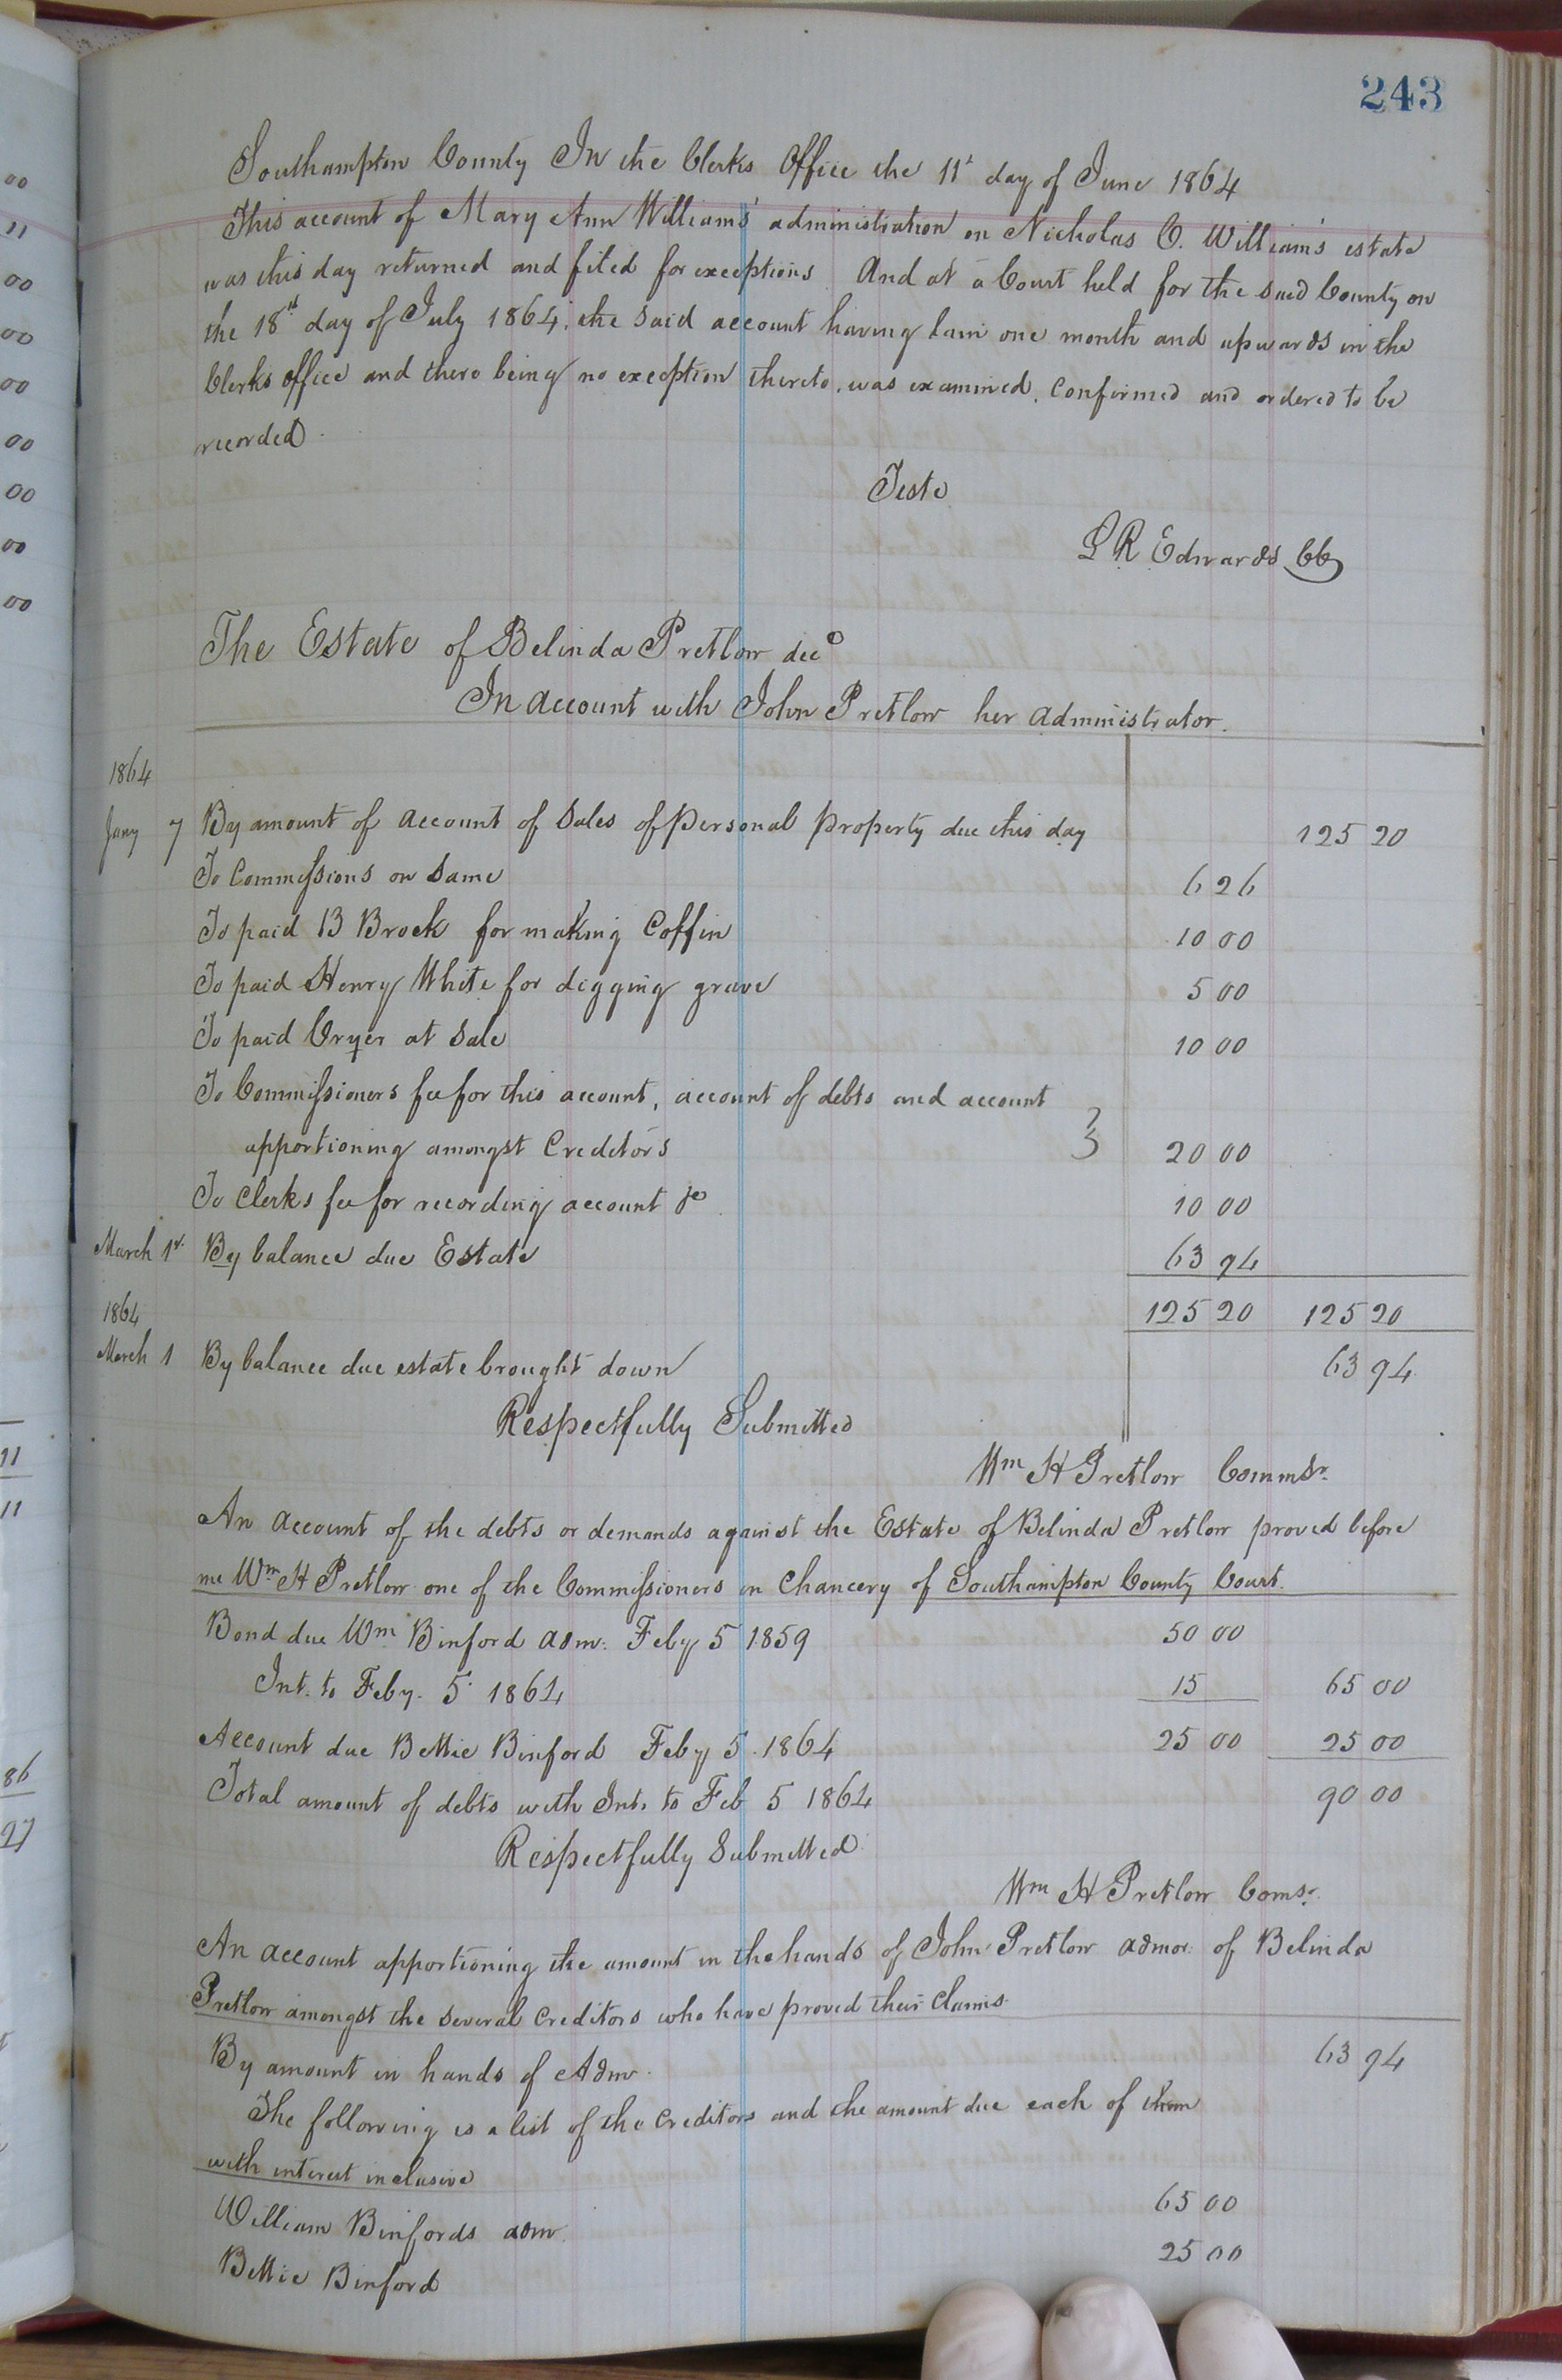 243
Southampton County In the Clerks Office the 11th day of June 1864
This account of Mary Ann Williams' administration on Nicholas C. William's estate
was this day returned and filed for exceptions And at a Court held for the said County on
the 18th day of July 1864, the said account having lain one month and upwards in the
Clerks office and there being no exception thereto, was examined, confirmed and ordered to be
recorded.
Teste
L R Edwards CC
The Estate of Belinda Pretlow decd
In account with John Pretlow her administrator.
1864
Jany 7 By amount of account of Sales of personal property due this day 125 20
To Commissions on same 6 26
To paid B Brock for making Coffin 10 00
To paid Henry White for digging grave 5 00
To paid Cryer at Sale 10 00
To Commissioners fee for this account, account of debts and account
apportioning amongst Creditors 20 00
To Clerks fee for recording account &c 10 00
March 1st By balance due Estate 63 94
1864 125 20 125 20
March 1 By balance due estate brought down 63 94
Respectfully Submitted
Wm H Pretlow Commsr.
An account of the debts or demands against the Estate of Belinda Pretlow proved before
me Wm H Pretlow one of the Commissioners in Chancery of Southampton County Court.
Bond due Wm Binford adm: Feby 5 1859 50 00
Int. to Feby. 5 1864 15 65 00
Account due Bettie Binford Feby 5. 1864 25 00 25 00
Total amount of debts with Int. to Feb 5 1864 90 00
Respectfully Submitted
Wm H Pretlow Comsr.
An account apportioning the amount in the hands of John Pretlow admor. of Belinda
Pretlow amongst the several creditors who have proved their claims.
By amount in hands of Admr. 63 94
The following is a list of the creditors and the amount due each of them
with interest inclusive
William Binfords admr. 65 00
Bettie Binford 25 00
00
11
00
00
00
00
00
00
00
11
11
86
27